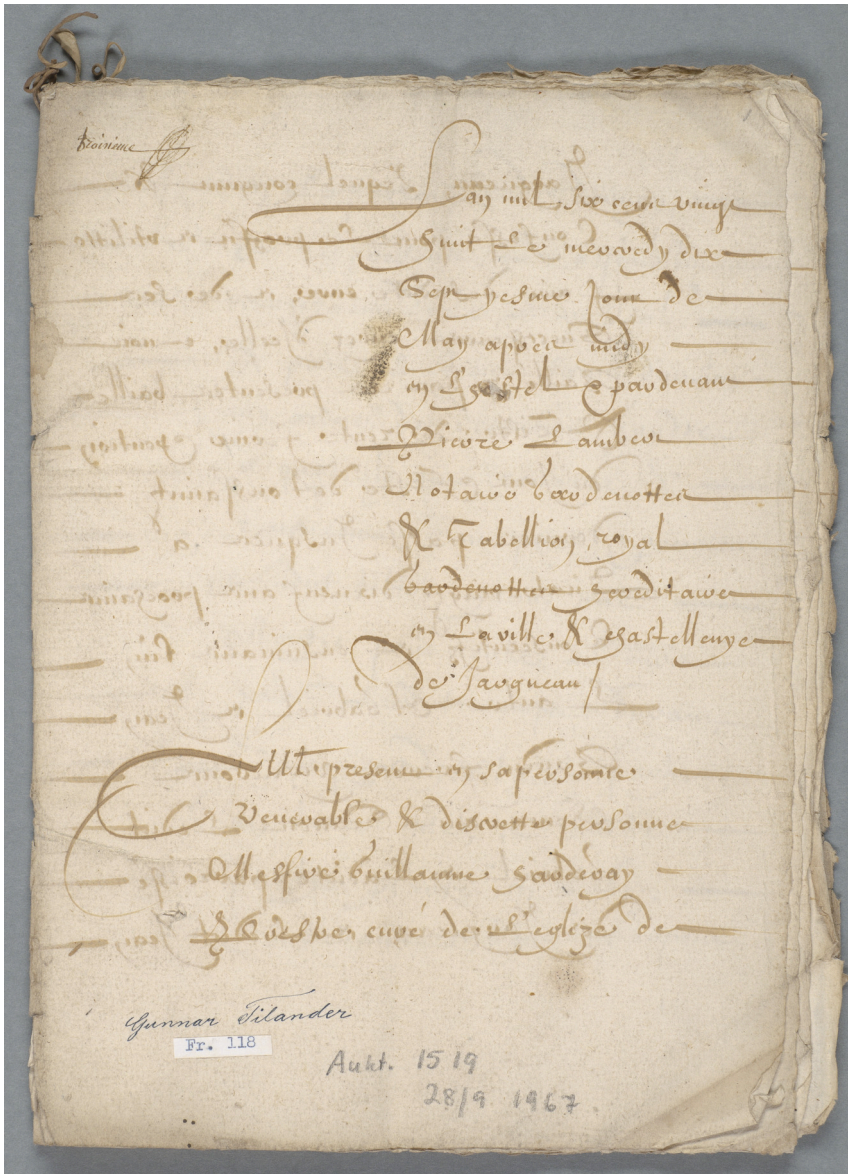 troisieme
Lan mil six cent vingt
huit Le mercredy dix
Sept yesme Jour de
May apres midy
en L'hostel & pardevant
Pierre Lambert
Notaire gardenottes
& Tabellion royal
gardenottes hereditaire
en La ville & chastellenye
de Jargueau
fut present en sa personne
Venerable & discrette personne
Messire Guillaume
prestre curé de L'eglize de
Gunnar Tilander
Fr. 118
Aukt. 1519
28/9 1967